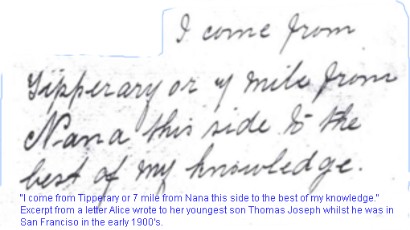 I come from
Tipperary or 7 mile from
Nana this side to the
best of my knowledge.
"I come from Tipperary or 7 mile from Nana this side to the best of my knowledge."
Excerpt from a letter Alice wrote to her youngest son Thomas Joseph whilst he was in
San Franciso in the early 1900's.